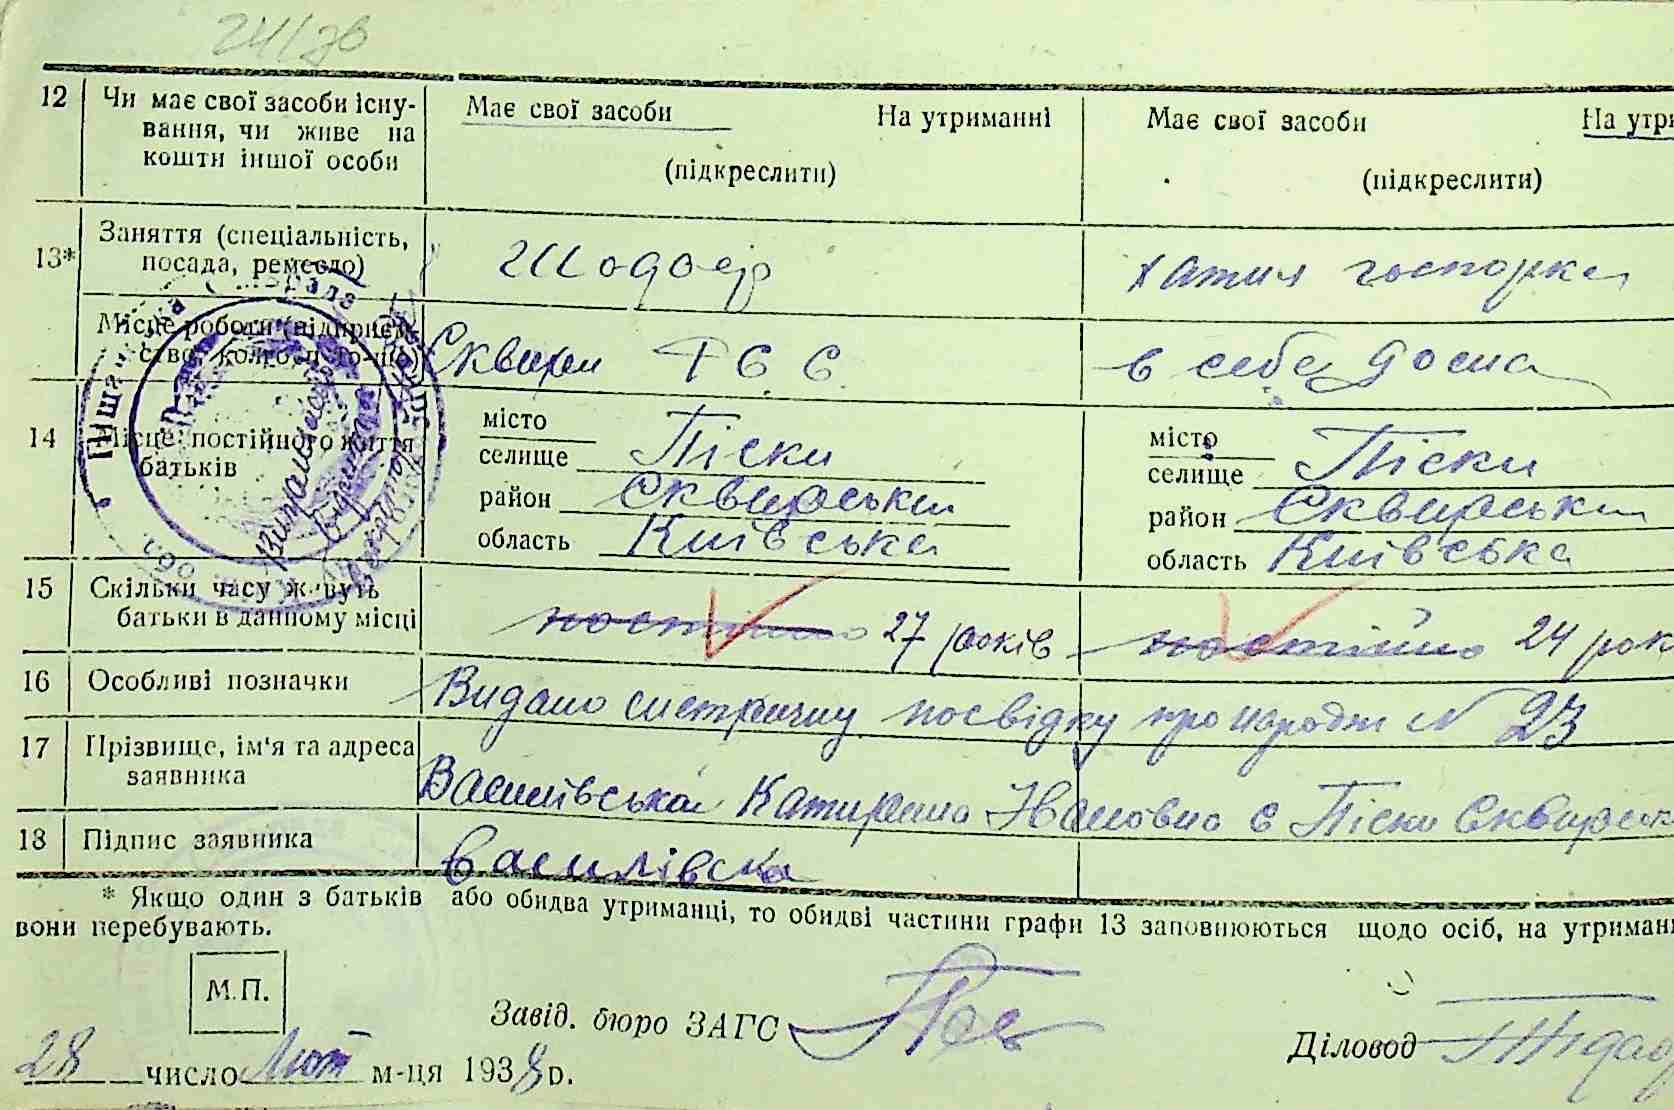 24/зв
12 Чи має свої засоби існу- Має свої засоби На утриманні Має свої засоби На утри
вання, чи живе на
кошти іншої особи (підкреслити) (підкреслити)
13* Заняття (спеціальність, Шофер хатня господарка
посада, ремесло)
Місце роботи (підприєм- Сквири в себе дома
ство, колгосп то-що)
14 Місце постійного життя місто Піски місто Піски
батьків селище селище
район Сквирськи район Сквирськи
область Київська область Київська
15 Скільки часу живуть постійно 27 років постійно 24 рок
батьки в данному місці
16 Особливі позначки Видано посвідку про народж N 23
17 Прізвище, ім'я та адреса Василівська Катирина Івановна с Піски Сквирськ
заявника
18 Підпис заявника Василівска
* Якщо один з батьків або обидва утриманці, то обидві частини графи 13 заповнюються щодо осіб, на утриман
вони перебувають.
М.П.
Завід. бюро ЗАГС
Діловод
28 число Лют м-ця 1938 р.